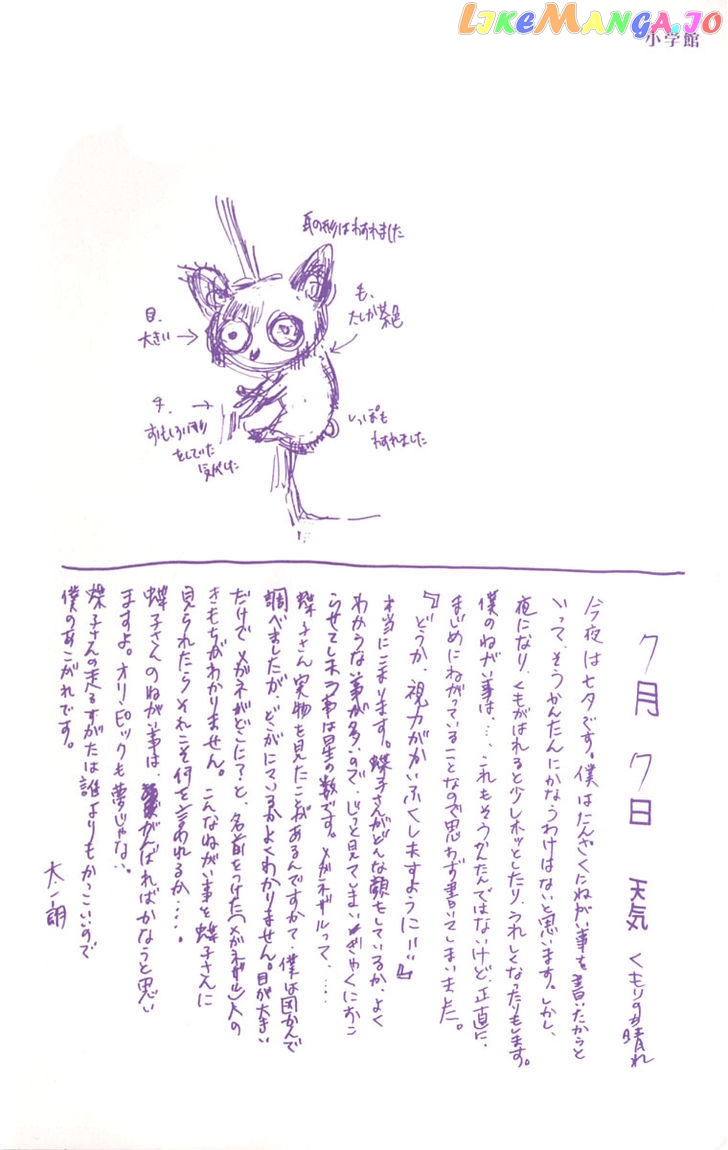 LIKEMANGA.IO
小学館
耳の形はわすれました
毛、
たしか茶色
目、
大きい
手、
おもしろい形
をしていた
気がした
しっぽも
わすれました
7月7日 天気 くもりのち晴れ
今夜は七夕です。僕はたんざくにねがい事を書いたからと
いって、そうかんたんにかなうわけはないと思います。しかし、
夜になり、くもがはれると少しホッとしたり、うれしくなったりもします。
僕のねがい事は…、これもそうかんたんではないけど、正直に、
まじめにねがっていることなので思わず書いてしまいました。
『どうか、視力がかいふくしますように!!』
本当にこまります。蝶子さんがどんな顔をしているか、よく
わからない事が多いので、じっと見てしまい ぎゃくにおこ
らせてしまう事は星の数です。メガネザルって、…
蝶子さん実物を見たことがあるんですかて、僕は図かんで
調べましたが、どこがにているかよくわかりません。目が大きい
だけでメガネがどこに?と、名前をつけた(メガネザル)人の
きもちがわかりません。こんなねがい事を蝶子さんに
見られたらそれこそ何を言われるか…。
蝶子さんのねがい事は、がんばればかなうと思い
ますよ。オリンピックも夢じゃない。
蝶子さんの走るすがたは誰よりもかっこいいので
僕のあこがれです。
太一朗